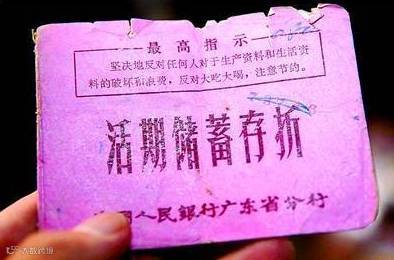 最高指示
坚决地反对任何人对于生产资料和生活资
料的破坏和浪费，反对大吃大喝，注意节约。
活期储蓄存折
国人民银行广东省分行
大数跨境